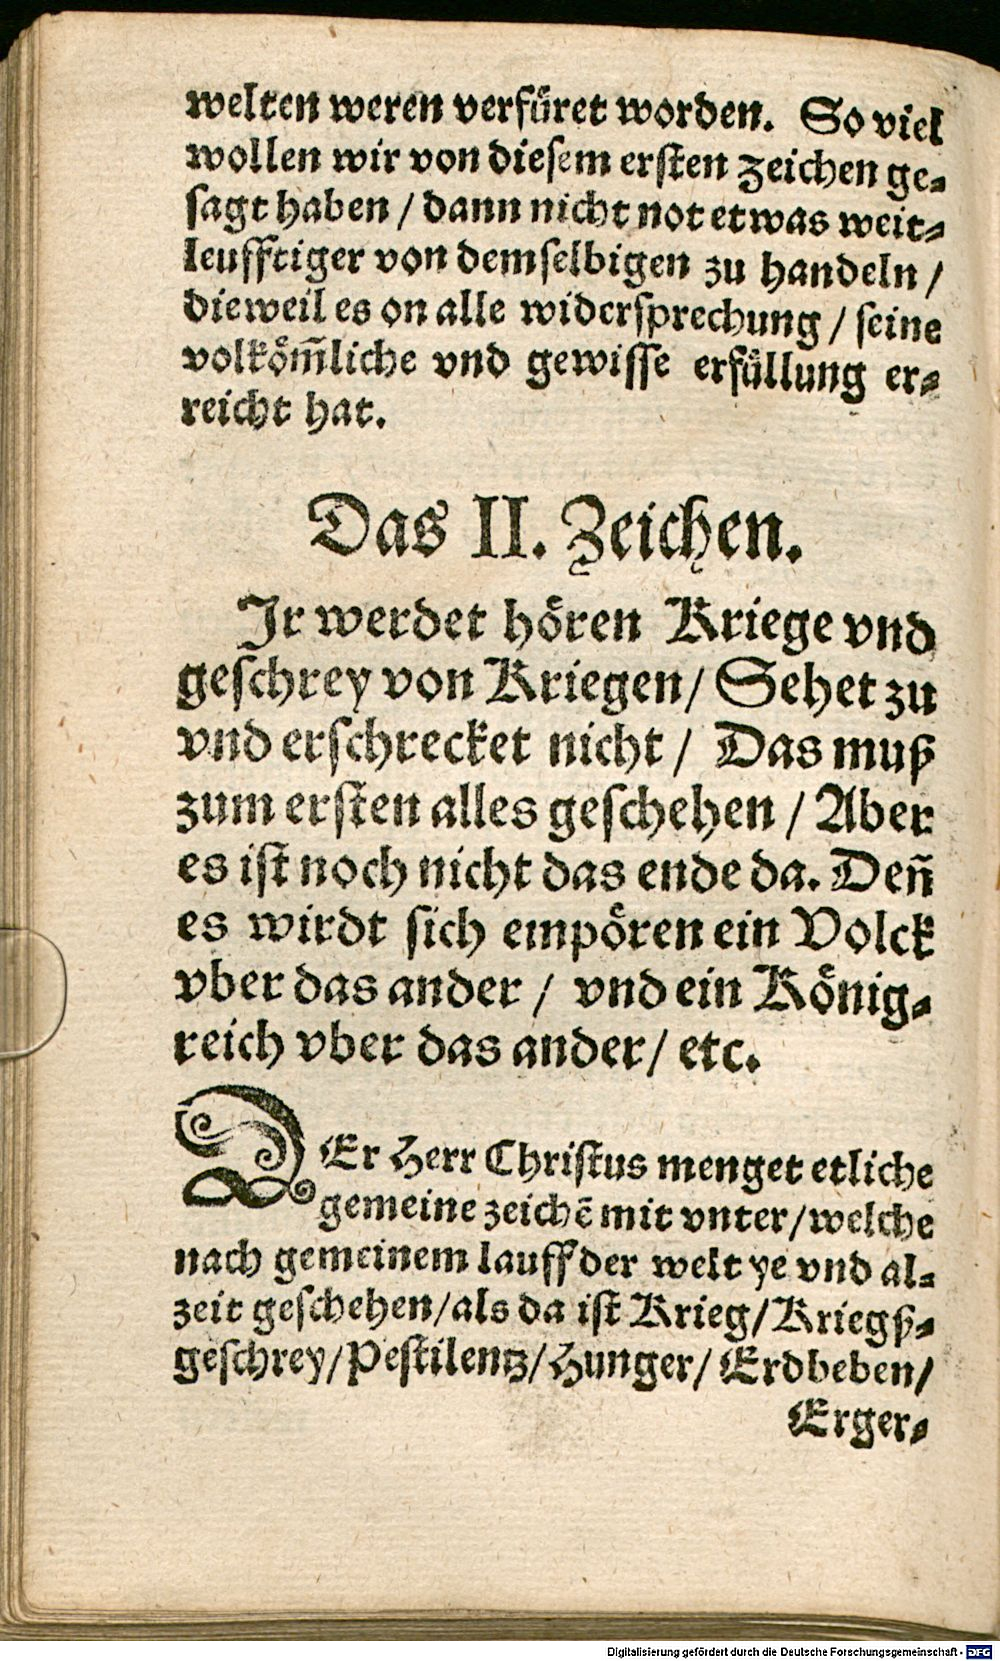 welten weren verfüret worden. So viel
wollen wir von diesem ersten zeichen ge⸗
sagt haben / dann nicht not etwas weit⸗
leufftiger von demselbigen zu handeln /
dieweil es on alle widersprechung / seine
volköm̃liche vnd gewisse erfüllung er⸗
reicht hat.
Das II. Zeichen.
Jr werdet hören Kriege vnd
geschrey von Kriegen / Sehet zu
vnd erschrecket nicht / Das muß
zum ersten alles geschehen / Aber
es ist noch nicht das ende da. Deñ
es wirdt sich empören ein Volck
vber das ander / vnd ein König⸗
reich vber das ander / etc.
DEr Herr Christus menget etliche
gemeine zeichẽ mit vnter / welche
nach gemeinem lauff der welt ye vnd al⸗
zeit geschehen / als da ist Krieg / Kriegß⸗
geschrey / Pestilentz / Hunger / Erdbeben /
Erger⸗
Digitalisierung gefördert durch die Deutsche Forschungsgemeinschaft - DFG